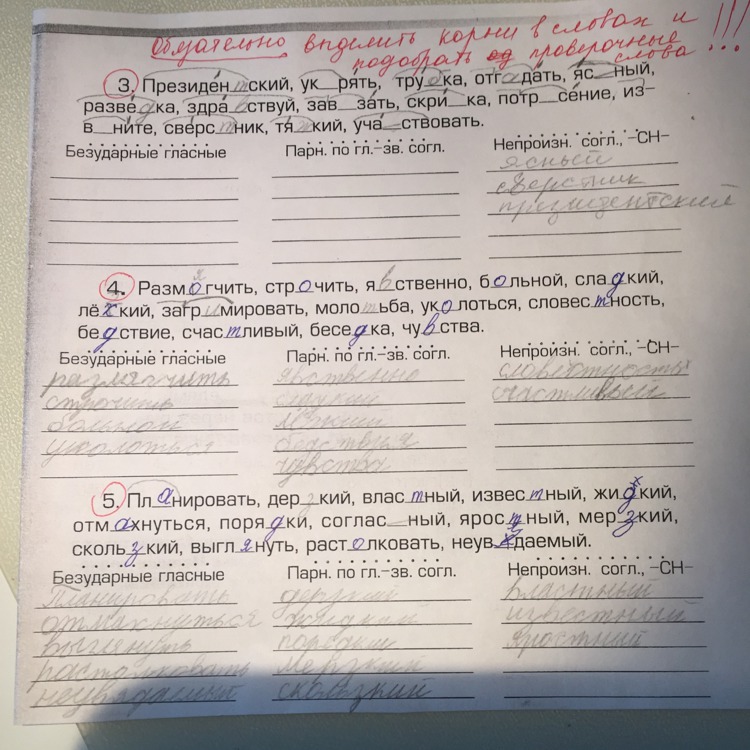 Обязательно выделить корни в словах и !!!
подобрать проверочные
слова
3. Президентский, ук__рять, трубка, отгадать, яс_ный,
разведка, здравствуй, зав__зать, скри__ка, потр__сение, из-
в__ните, сверстник, тя__кий, уча__ствовать.
Безударные гласные Парн. по гл.–зв. согл. Непроизн. согл., –СН–
ясный
сверстник
президентский
4. Размягчить, строчить, явственно, больной, сладкий,
лёгкий, загримировать, молотьба, уколоться, словестность,
бедствие, счастливый, беседка, чувства.
Безударные гласные Парн. по гл.–зв. согл. Непроизн. согл., –СН–
размягчить явственно словестность
строчить сладкий счастливый
больной лёгкий
уколоться бедствия
чувства
5. Планировать, дерзкий, властный, известный, жидкий,
отмахнуться, порядки, соглас_ный, яростный, мерзкий,
скользкий, выглянуть, растолковать, неувядаемый.
Безударные гласные Парн. по гл.–зв. согл. Непроизн. согл., –СН–
планировать дерзкий властный
отмахнуться жидкий известный
выгленуть порядки яростный
растолковать мерзкий
неувядаемый скользкий